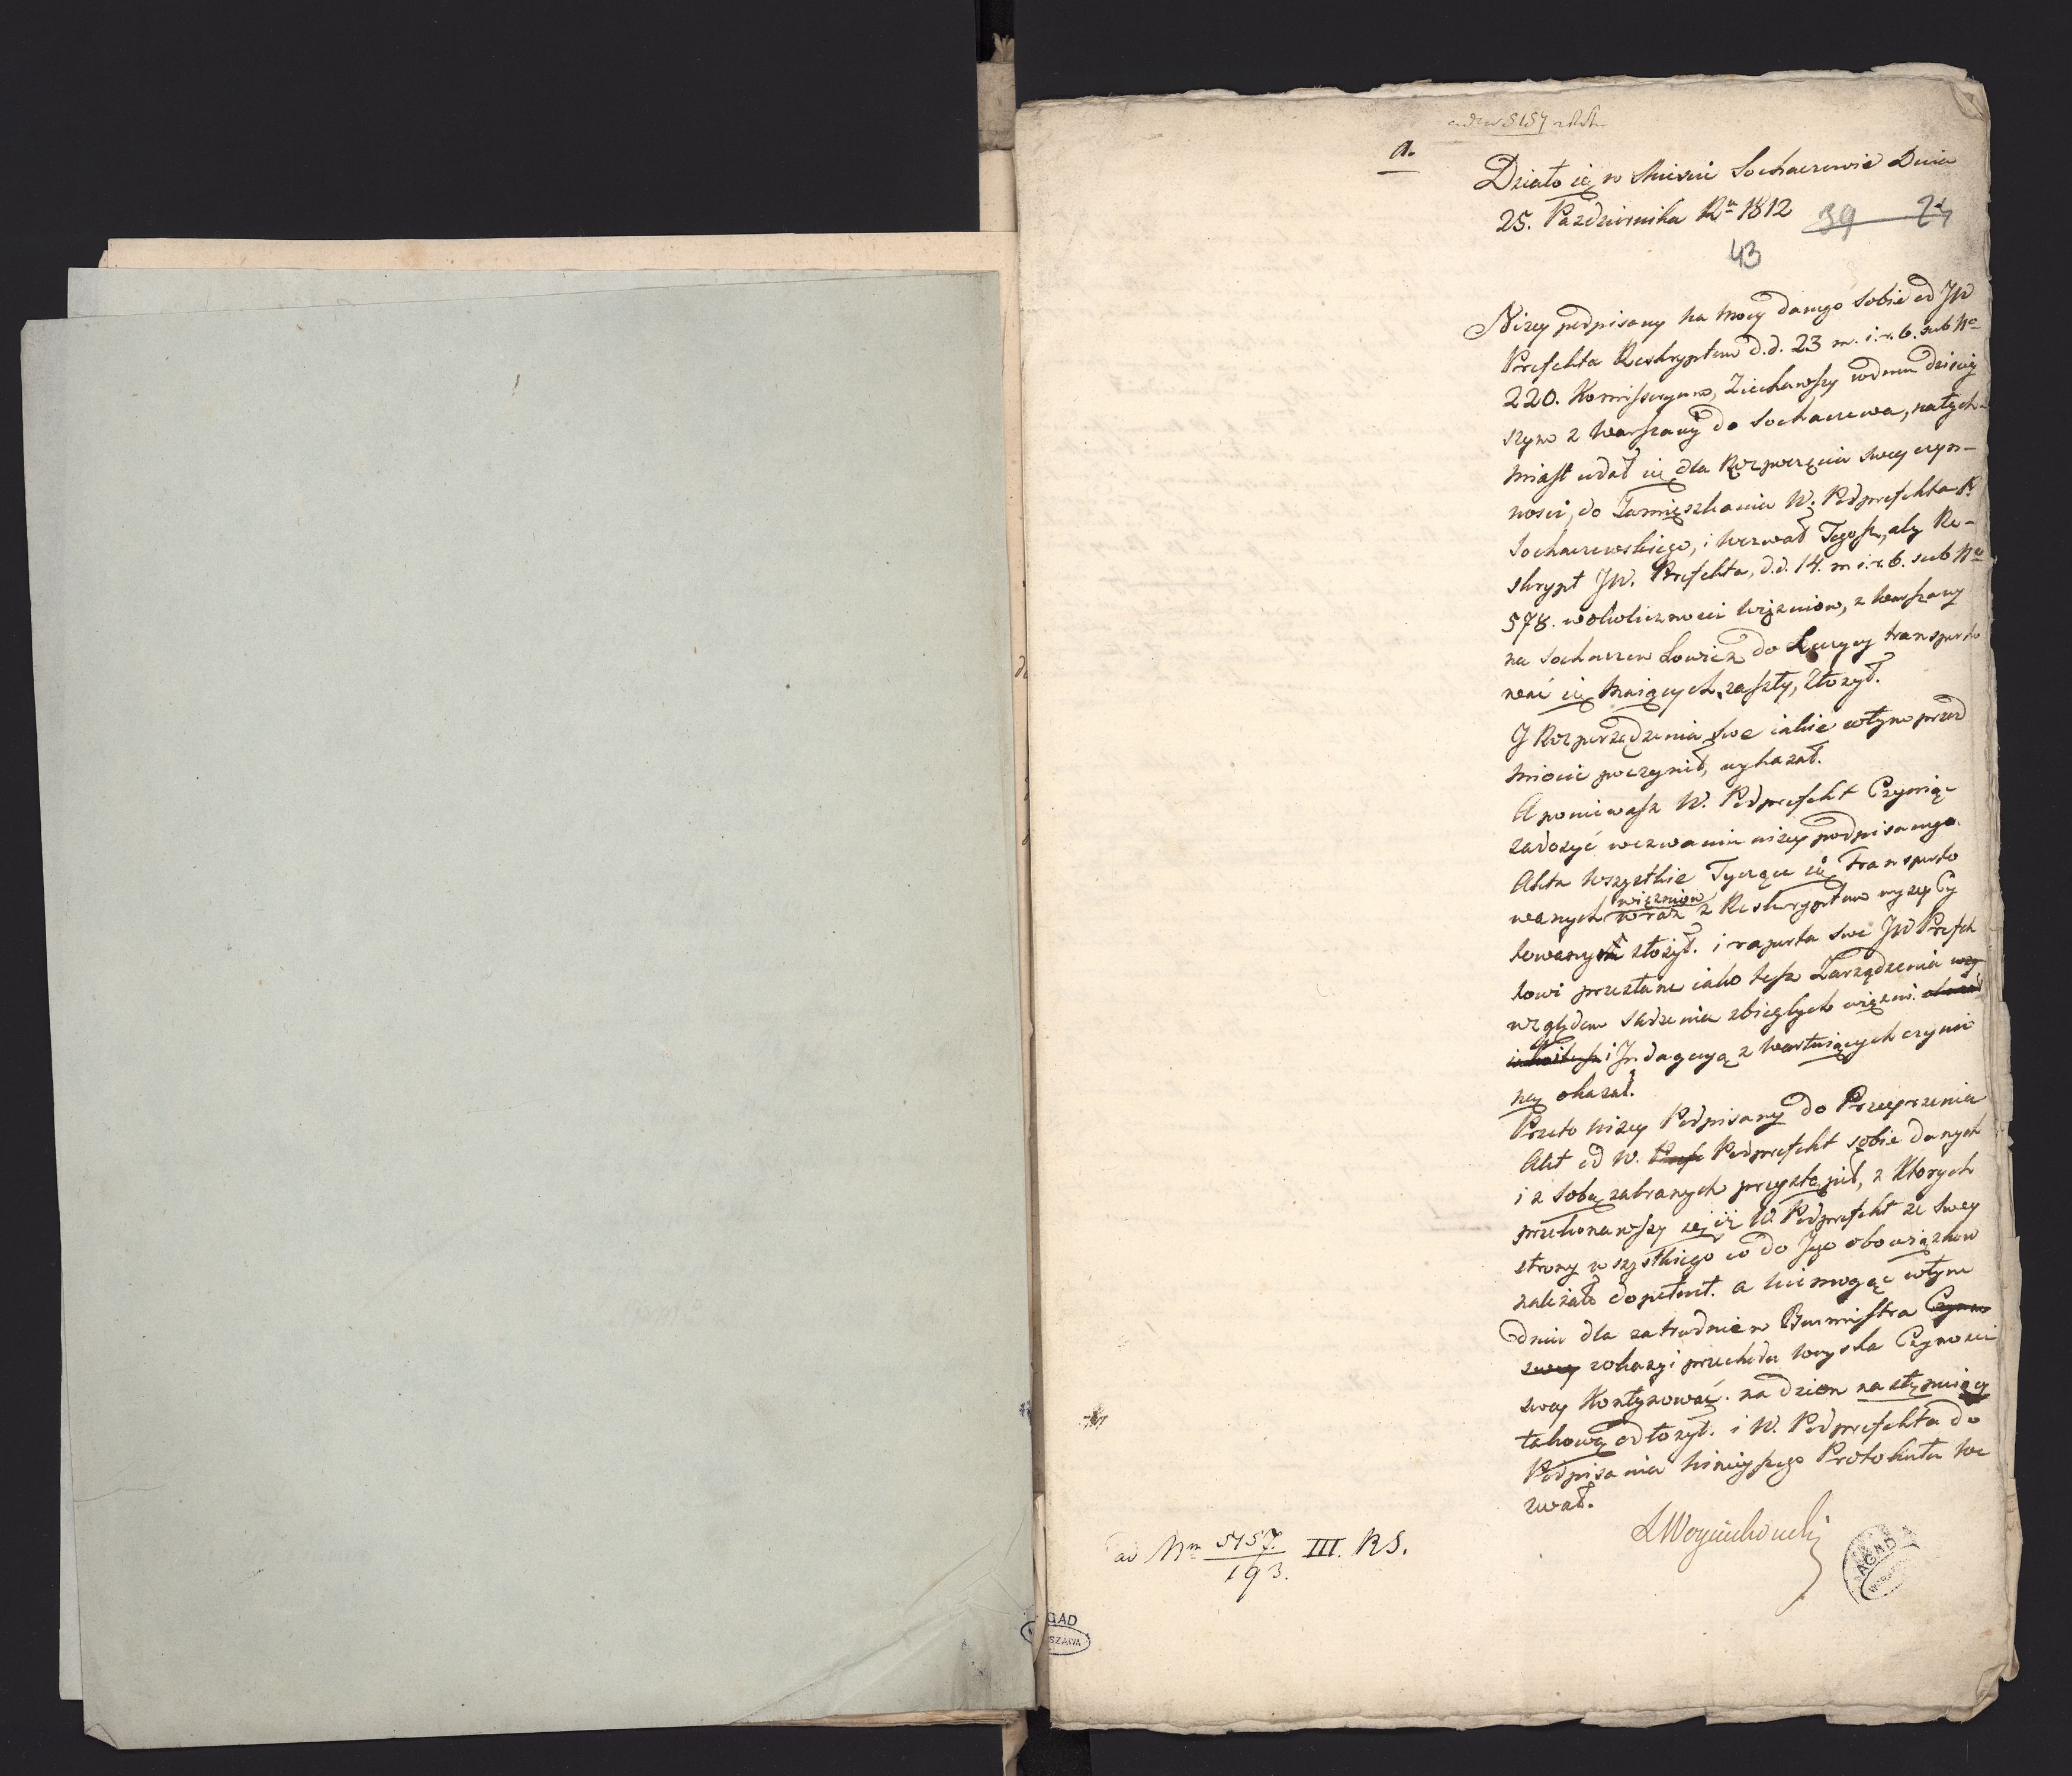 a.
Działo się w Mieście Sochaczewie Dnia
25. Pazdziernika Ru 1812
39 24
43
Niżey podpisany na mocy danego sobie od JW
Prefekta Reskryptem d.d. 23 m. i. r. b. sub No
220. Komissoryum, Ziechawszy wdniu dzisiey
szym z Warszawy do Sochaczewa, natych-
miast udał się dla Rozpoczęcia swey czyn-
ności, do Zamięszkania W. Podprefekta P.
Sochaczewskiego, i wezwał Tegosz, aby Re-
skrypt JW. Prefekta, d.d. 14. m. i. r. b. sub No
578. wokoliczności więzniow, z Warszawy
na Sochaczew Łowicz do Łęczycy transporto
wać się maiących, zaszły, złożył.
J Rozporządzenia swe iakie wtym przed
miocie poczynił, wykazał.
A poniewasz W. Podprefekt Czyniąc
zadosyć wezwaniu niżey podpisanego
Akta wszystkie Tyczące się Transporto
więzniow
wanych wraz z Reskryptem wyżey Cy
towanym złożył. i raporta swe JW Prefek
towi przesłane iako tesz Zarządzenia wzg
względem sadzenia zbiegłych więzni.
i Jndagacyą z wartuiących czynio
ną okazał.
Przeto niżey Podpisany do Przeyrzenia
Akt od W. Pref Podprefekt sobie danych
i z sobą zabranych przystąpił, z ktorych
przekonawszy się iż W. Podprefekt ze swey
strony wszystkiego co do Jego obowiązkow
należało dopełnił. a nie mogąc wtym
dniu dla zatrudnien Burmistra Czynno
swey zokazyi przechodu woyska Czynnosci
swey Kontynować. na dzien następuiący
takową odłożył. i W. Podprefekta do
Podpisania ninieyszego Protokułu we
zwał.
LWoyciechowski
ad Nm 5157./193. III. RS.
AGAD
WARSZAWA
GAD
SZAWA